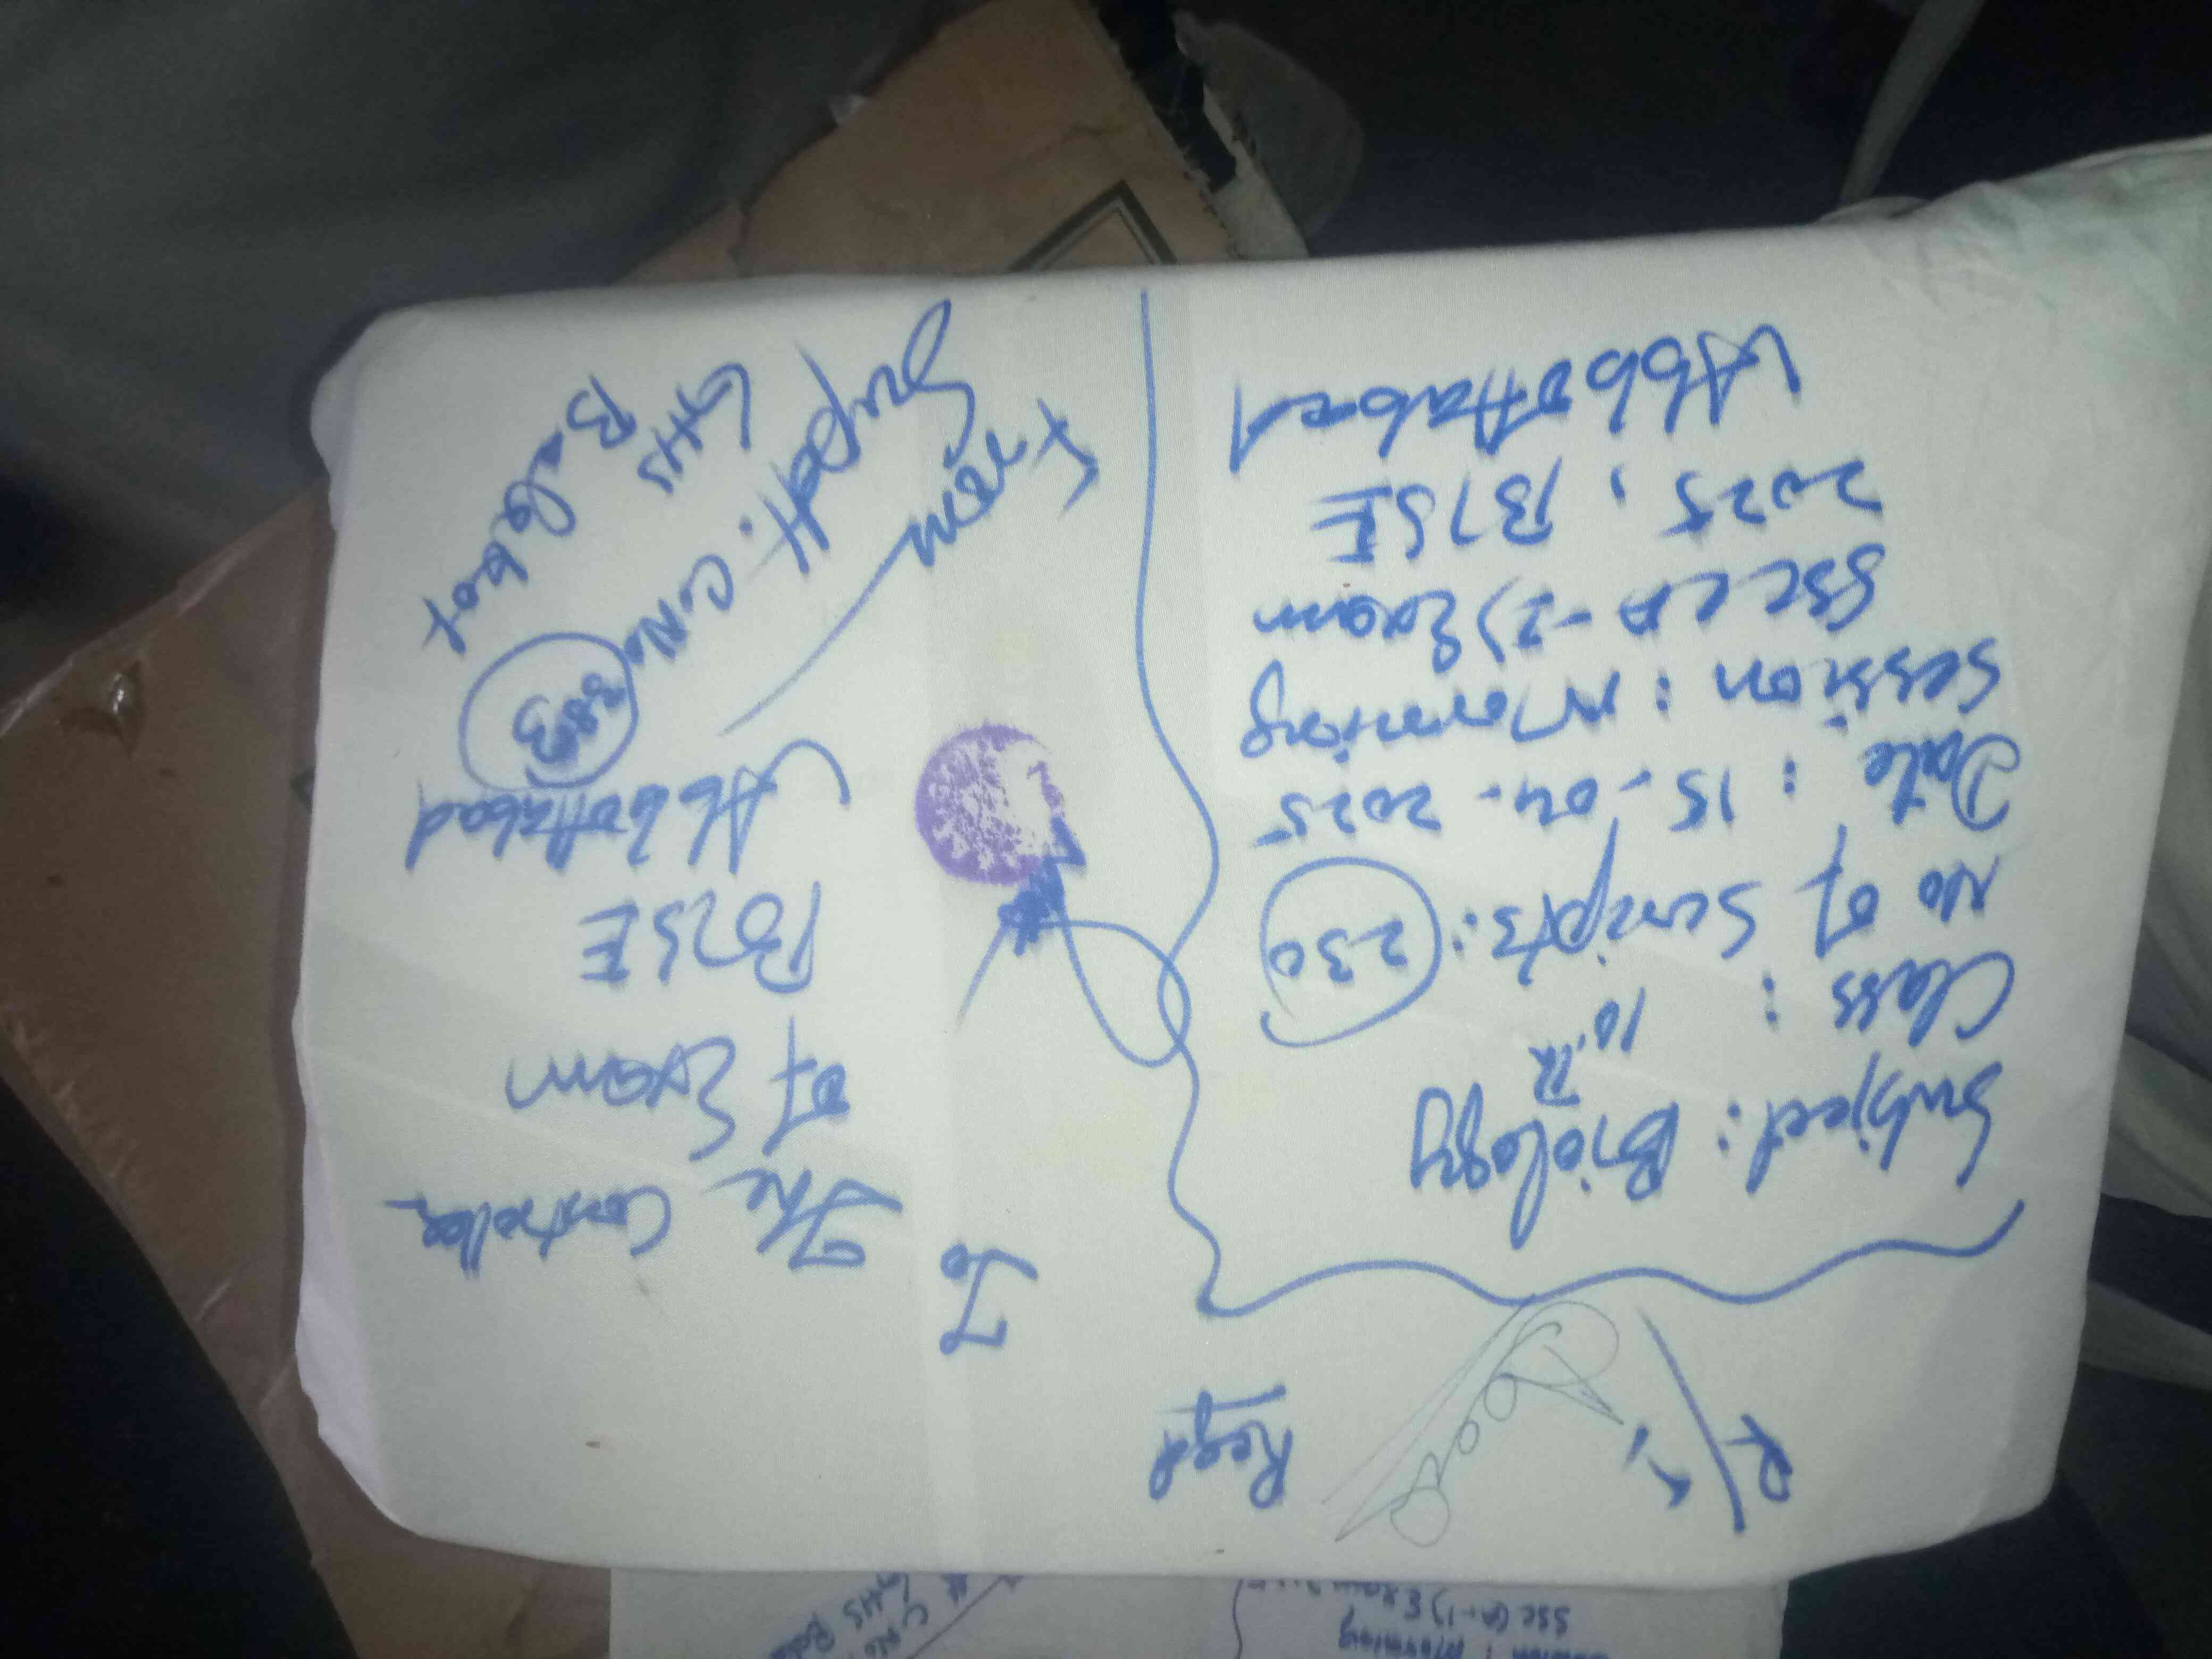 R
Regd
Subject: Biology
Class : 10th
No of Scripts: 230
Date : 15-04-2025
Session : Morning
SSC (A-2) Exam
2025, BISE
Abbottabad
To
The Controller
of Exam
BISE
Abbottabad
From
Supdtt: C.No
GHS
SSC (A-1) Exam
Morning
GHS